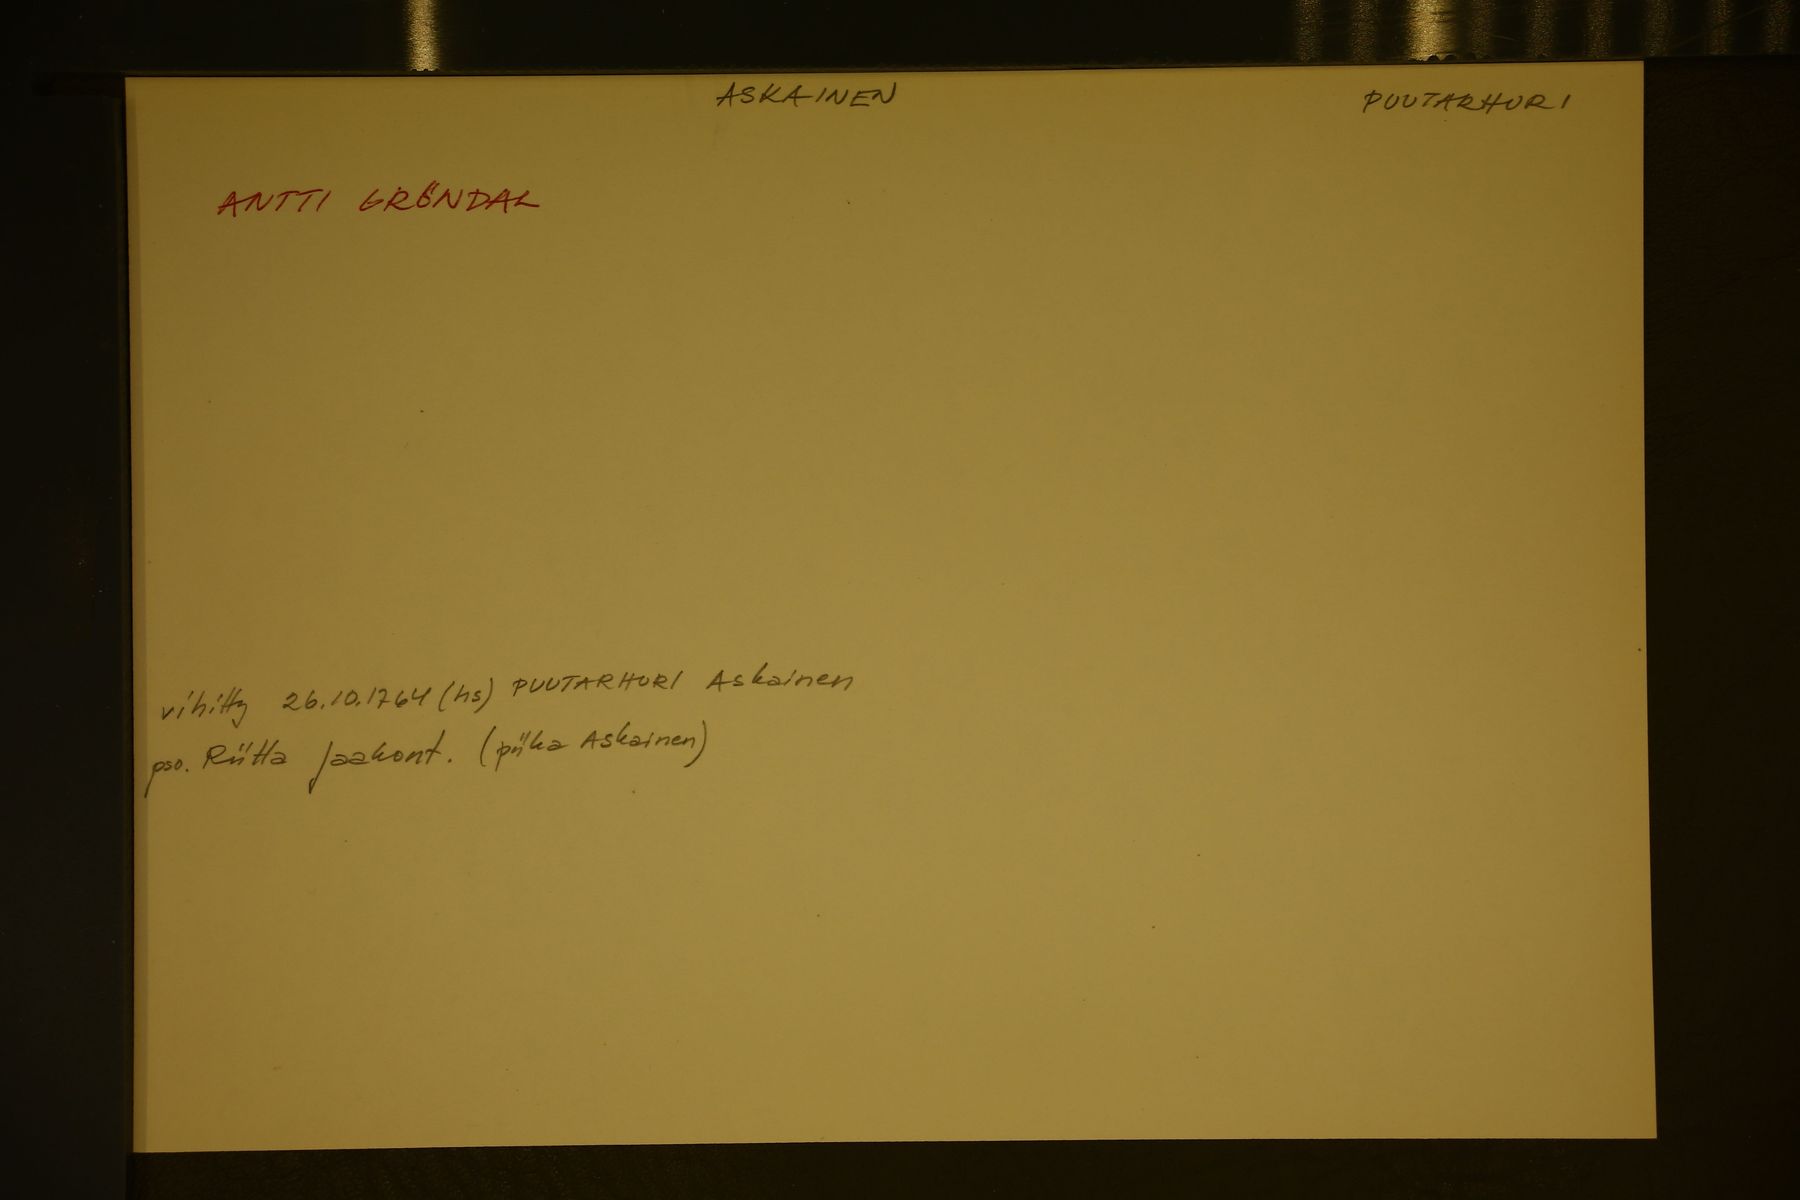 ASKAINEN
PUUTARHURI
ANTTI GRÖNDAL
vihitty 26.10.1764 (hs) PUUTARHURI Askainen
pso. Riitta Jaakont. (piika Askainen)